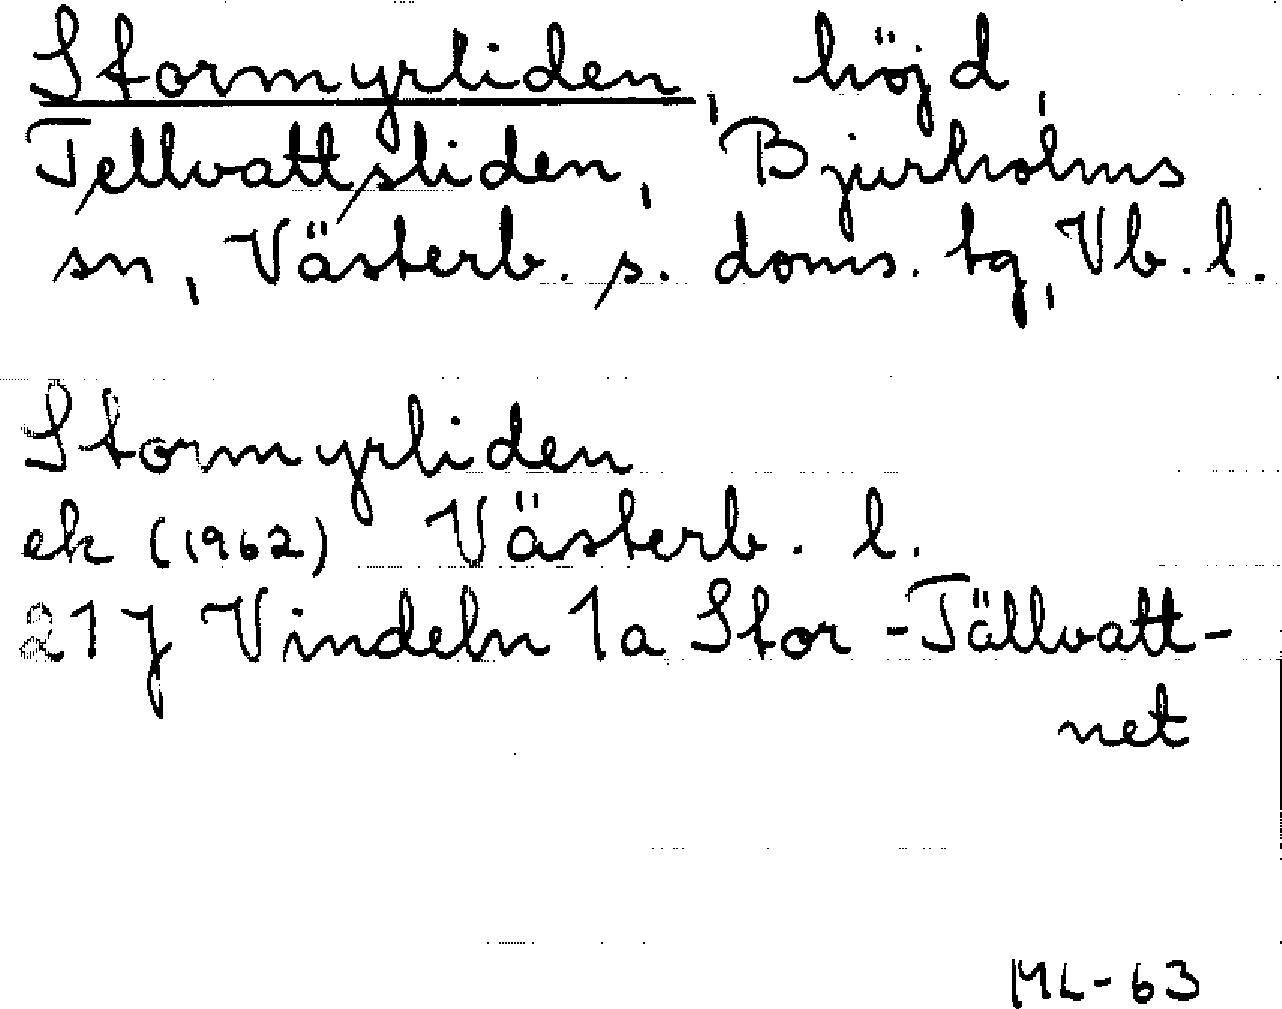 Stormyrliden, höjd,
Tellvattsliden, Bjurholms
sn, Västerb. s. doms. tg, Vb. l.
Stormyrliden
ek (1962) Västerb. l.
21 J Vindeln 1a Stor-Tällvatt-
net
ML-63